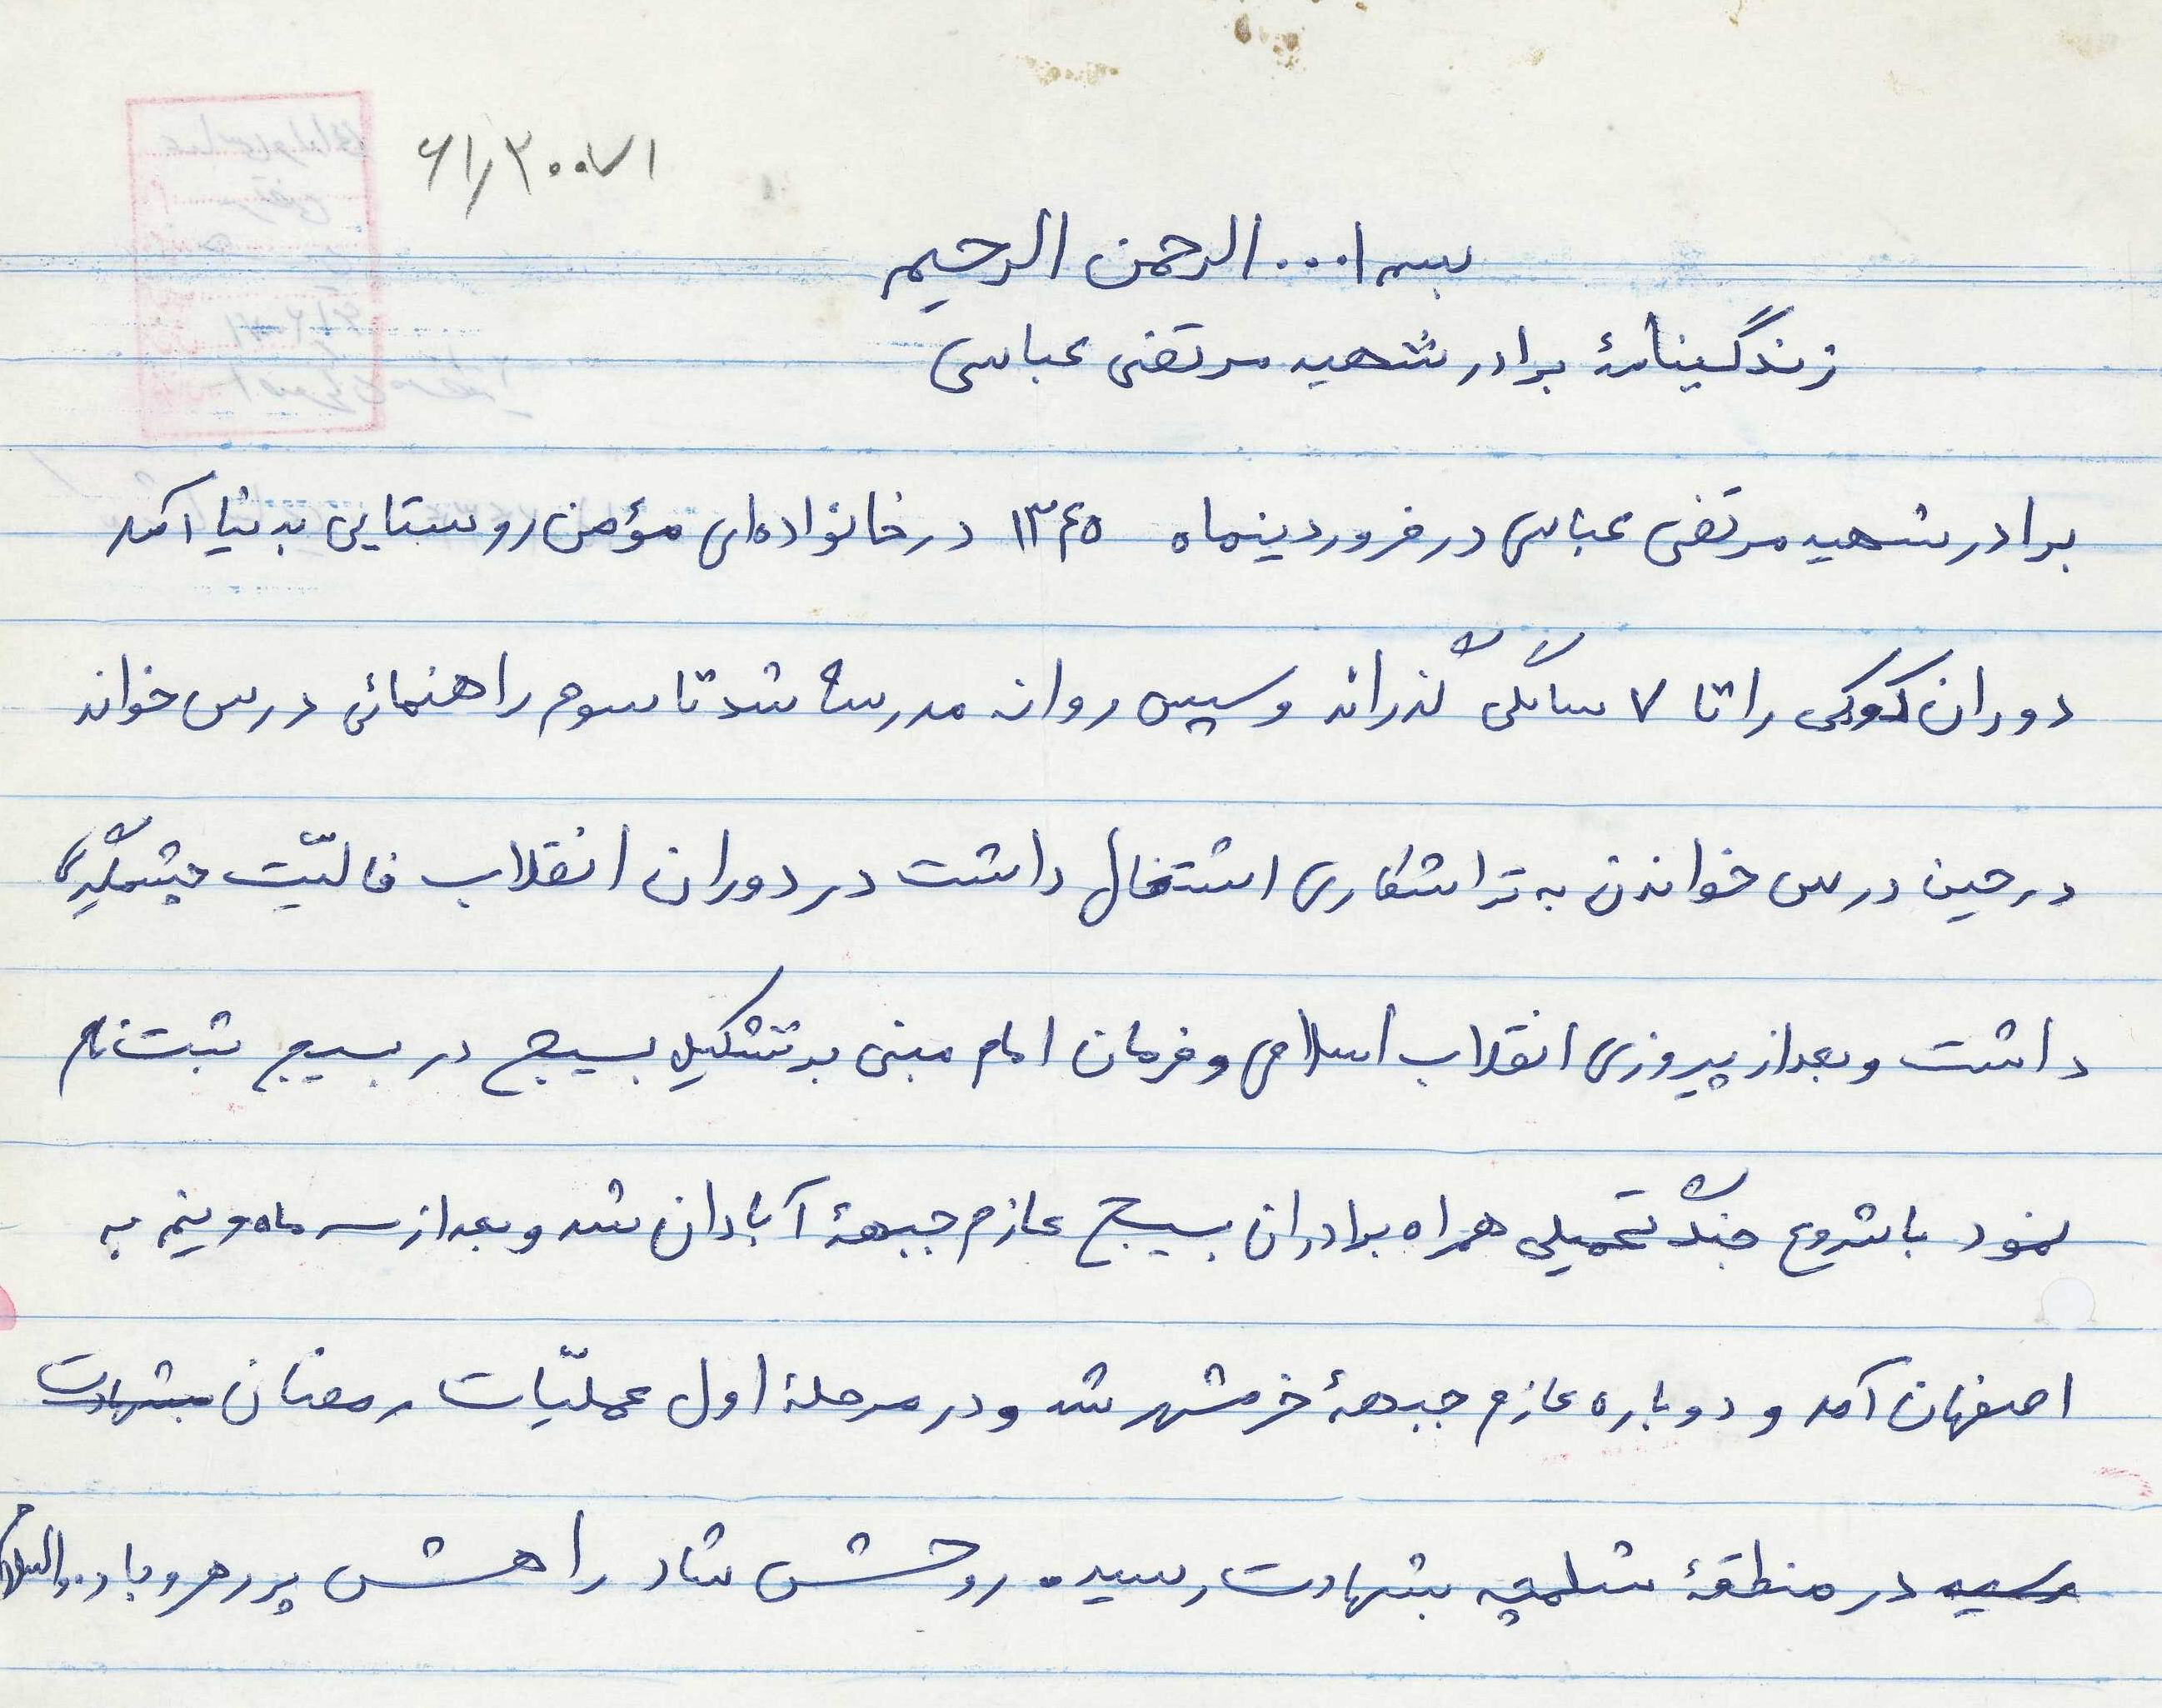 ۶۱/۲۰۰۷۱
بسم ا... الرحمن الرحیم
زندگینامهٔ برادر شهید مرتضی عباسی
برادر شهید مرتضی عباسی در فروردینماه ۱۳۴۵ در خانواده‌ای مؤمن روستایی بدنیا آمد
دوران کودکی را تا ۷ سالگی گذراند و سپس روانه مدرسه شد تا سوم راهنمائی درس خواند
در حین درس خواندن به تراشکاری اشتغال داشت در دوران انقلاب فالیّت چشمگیری
داشت و بعد از پیروزی انقلاب اسلامی و فرمان امام مبنی بر تشکیل بسیج در بسیج ثبت نام
نمود با شروع جنگ تحمیلی همراه برادران بسیج عازم جبههٔ آبادان شد و بعد از سه ماه و نیم به
اصفهان آمد و دوباره عازم جبههٔ خرمشهر شد و در مرحلهٔ اول عملیّات رمضان بشهادت
رسید در منطقهٔ شلمچه بشهادت رسید. روحش شاد راهش پر رهرو باد. والسلام